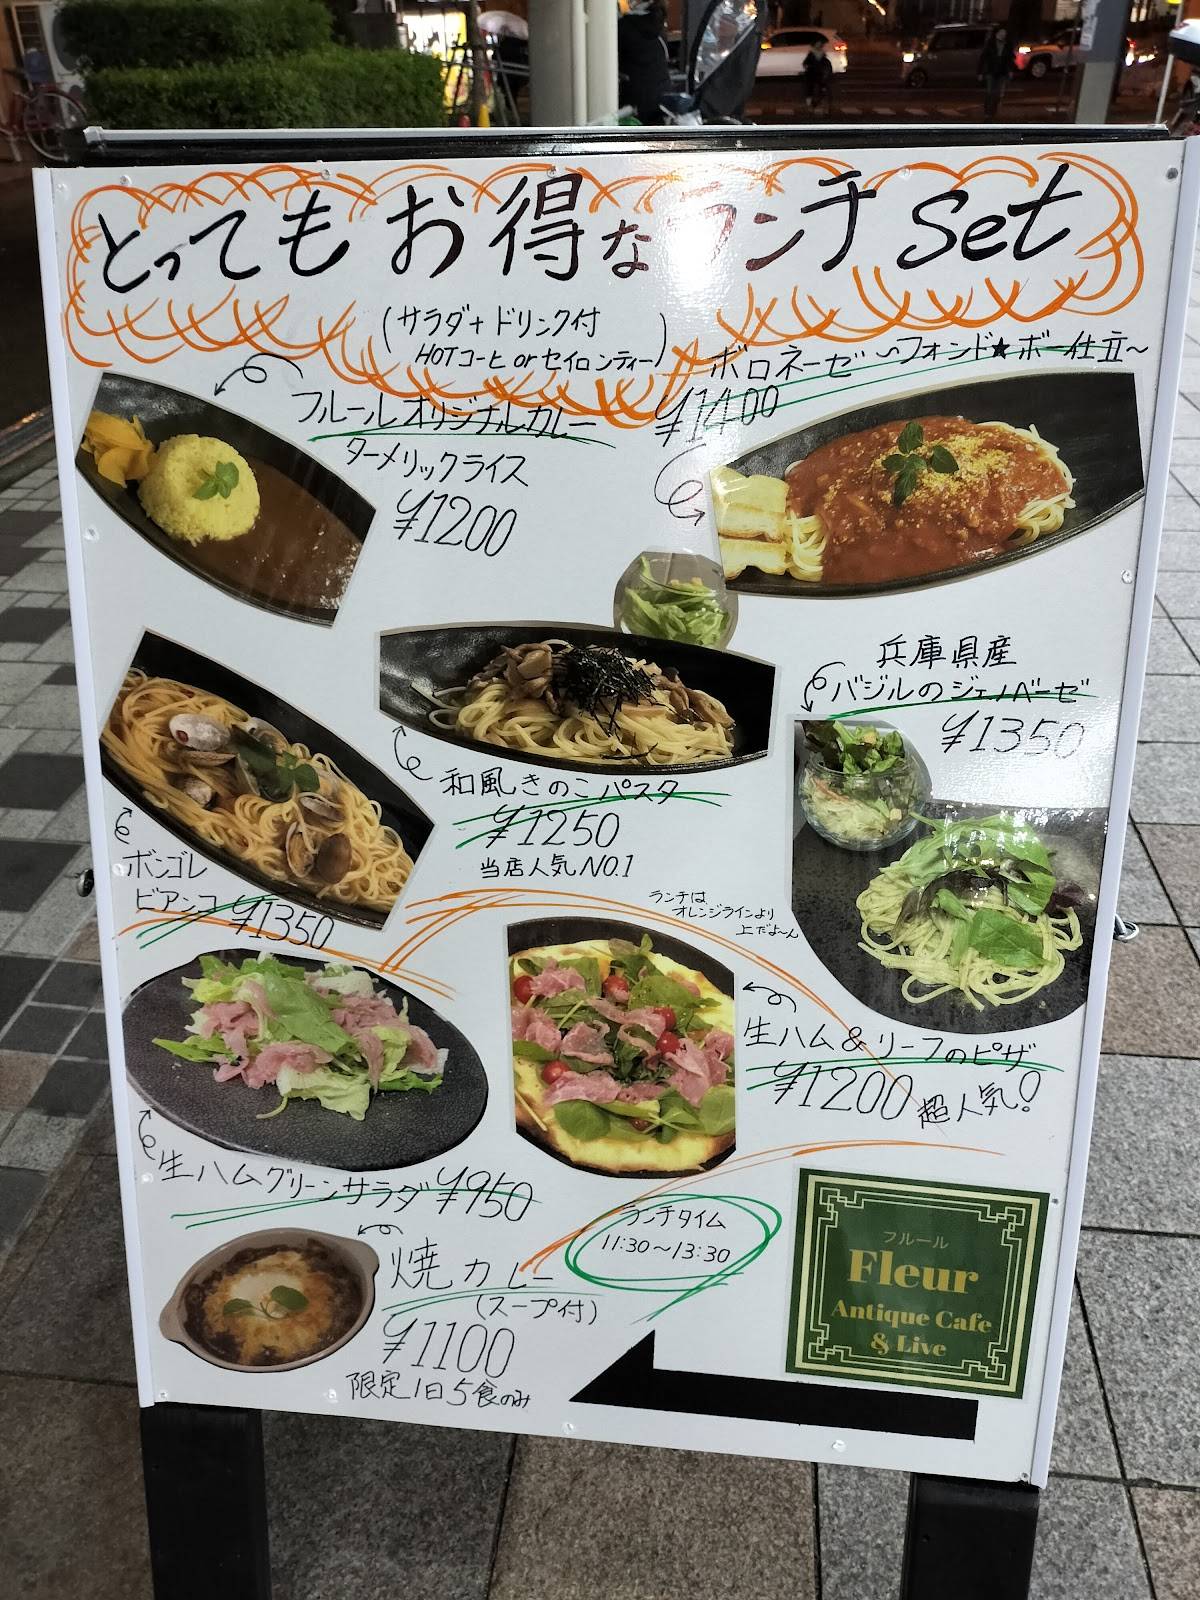 とってもお得なランチSet
(サラダ+ドリンク付
HOTコーヒ or セイロンティー)
フルールオリジナルカレー
ターメリックライス
¥1200
ボロネーゼ ~フォンド★ボー仕立~
¥1400
和風きのこパスタ
¥1250
当店人気NO.1
兵庫県産
バジルのジェノベーゼ
¥1350
ボンゴレ
ビアンコ ¥1350
ランチは
オレンジラインより
上だよ~ん
生ハム&リーフのピザ
¥1200 超人気!
生ハムグリーンサラダ ¥950
ランチタイム
11:30~13:30
焼カレー
(スープ付)
¥1100
限定1日5食のみ
フルール
Fleur
Antique Cafe
& Live